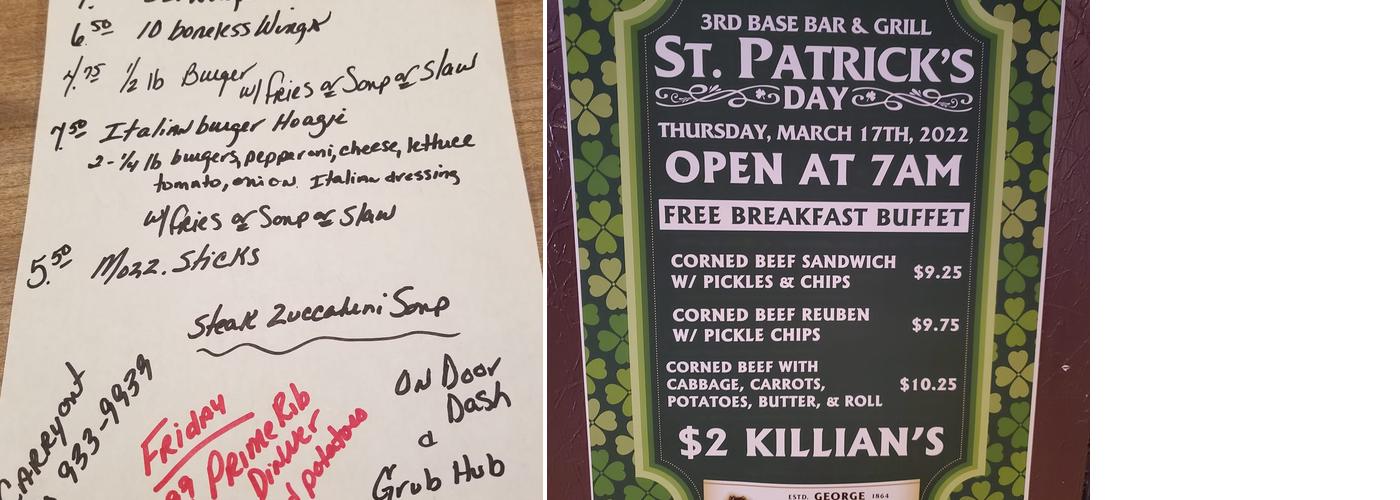 6.50 10 boneless Wings
4.75 1/2 lb Burger
w/ fries or Soup or Slaw
7.50 Italian burger Hoagie
2-1/4 lb burgers, pepperoni, cheese, lettuce
tomato, onion. Italian dressing
w/ fries or Soup or Slaw
5.50 Mozz. Sticks
Steak Zuccahini Soup
CARRYOUT
933-9939
FRIDAY
99 PRIME Rib
Dinner
potatoes
ON DOOR
Dash
a
Grub Hub
3RD BASE BAR & GRILL
ST. PATRICK'S
DAY
THURSDAY, MARCH 17TH, 2022
OPEN AT 7AM
FREE BREAKFAST BUFFET
CORNED BEEF SANDWICH
W/ PICKLES & CHIPS $9.25
CORNED BEEF REUBEN
W/ PICKLE CHIPS $9.75
CORNED BEEF WITH
CABBAGE, CARROTS, $10.25
POTATOES, BUTTER, & ROLL
$2 KILLIAN'S
ESTD. GEORGE 1864